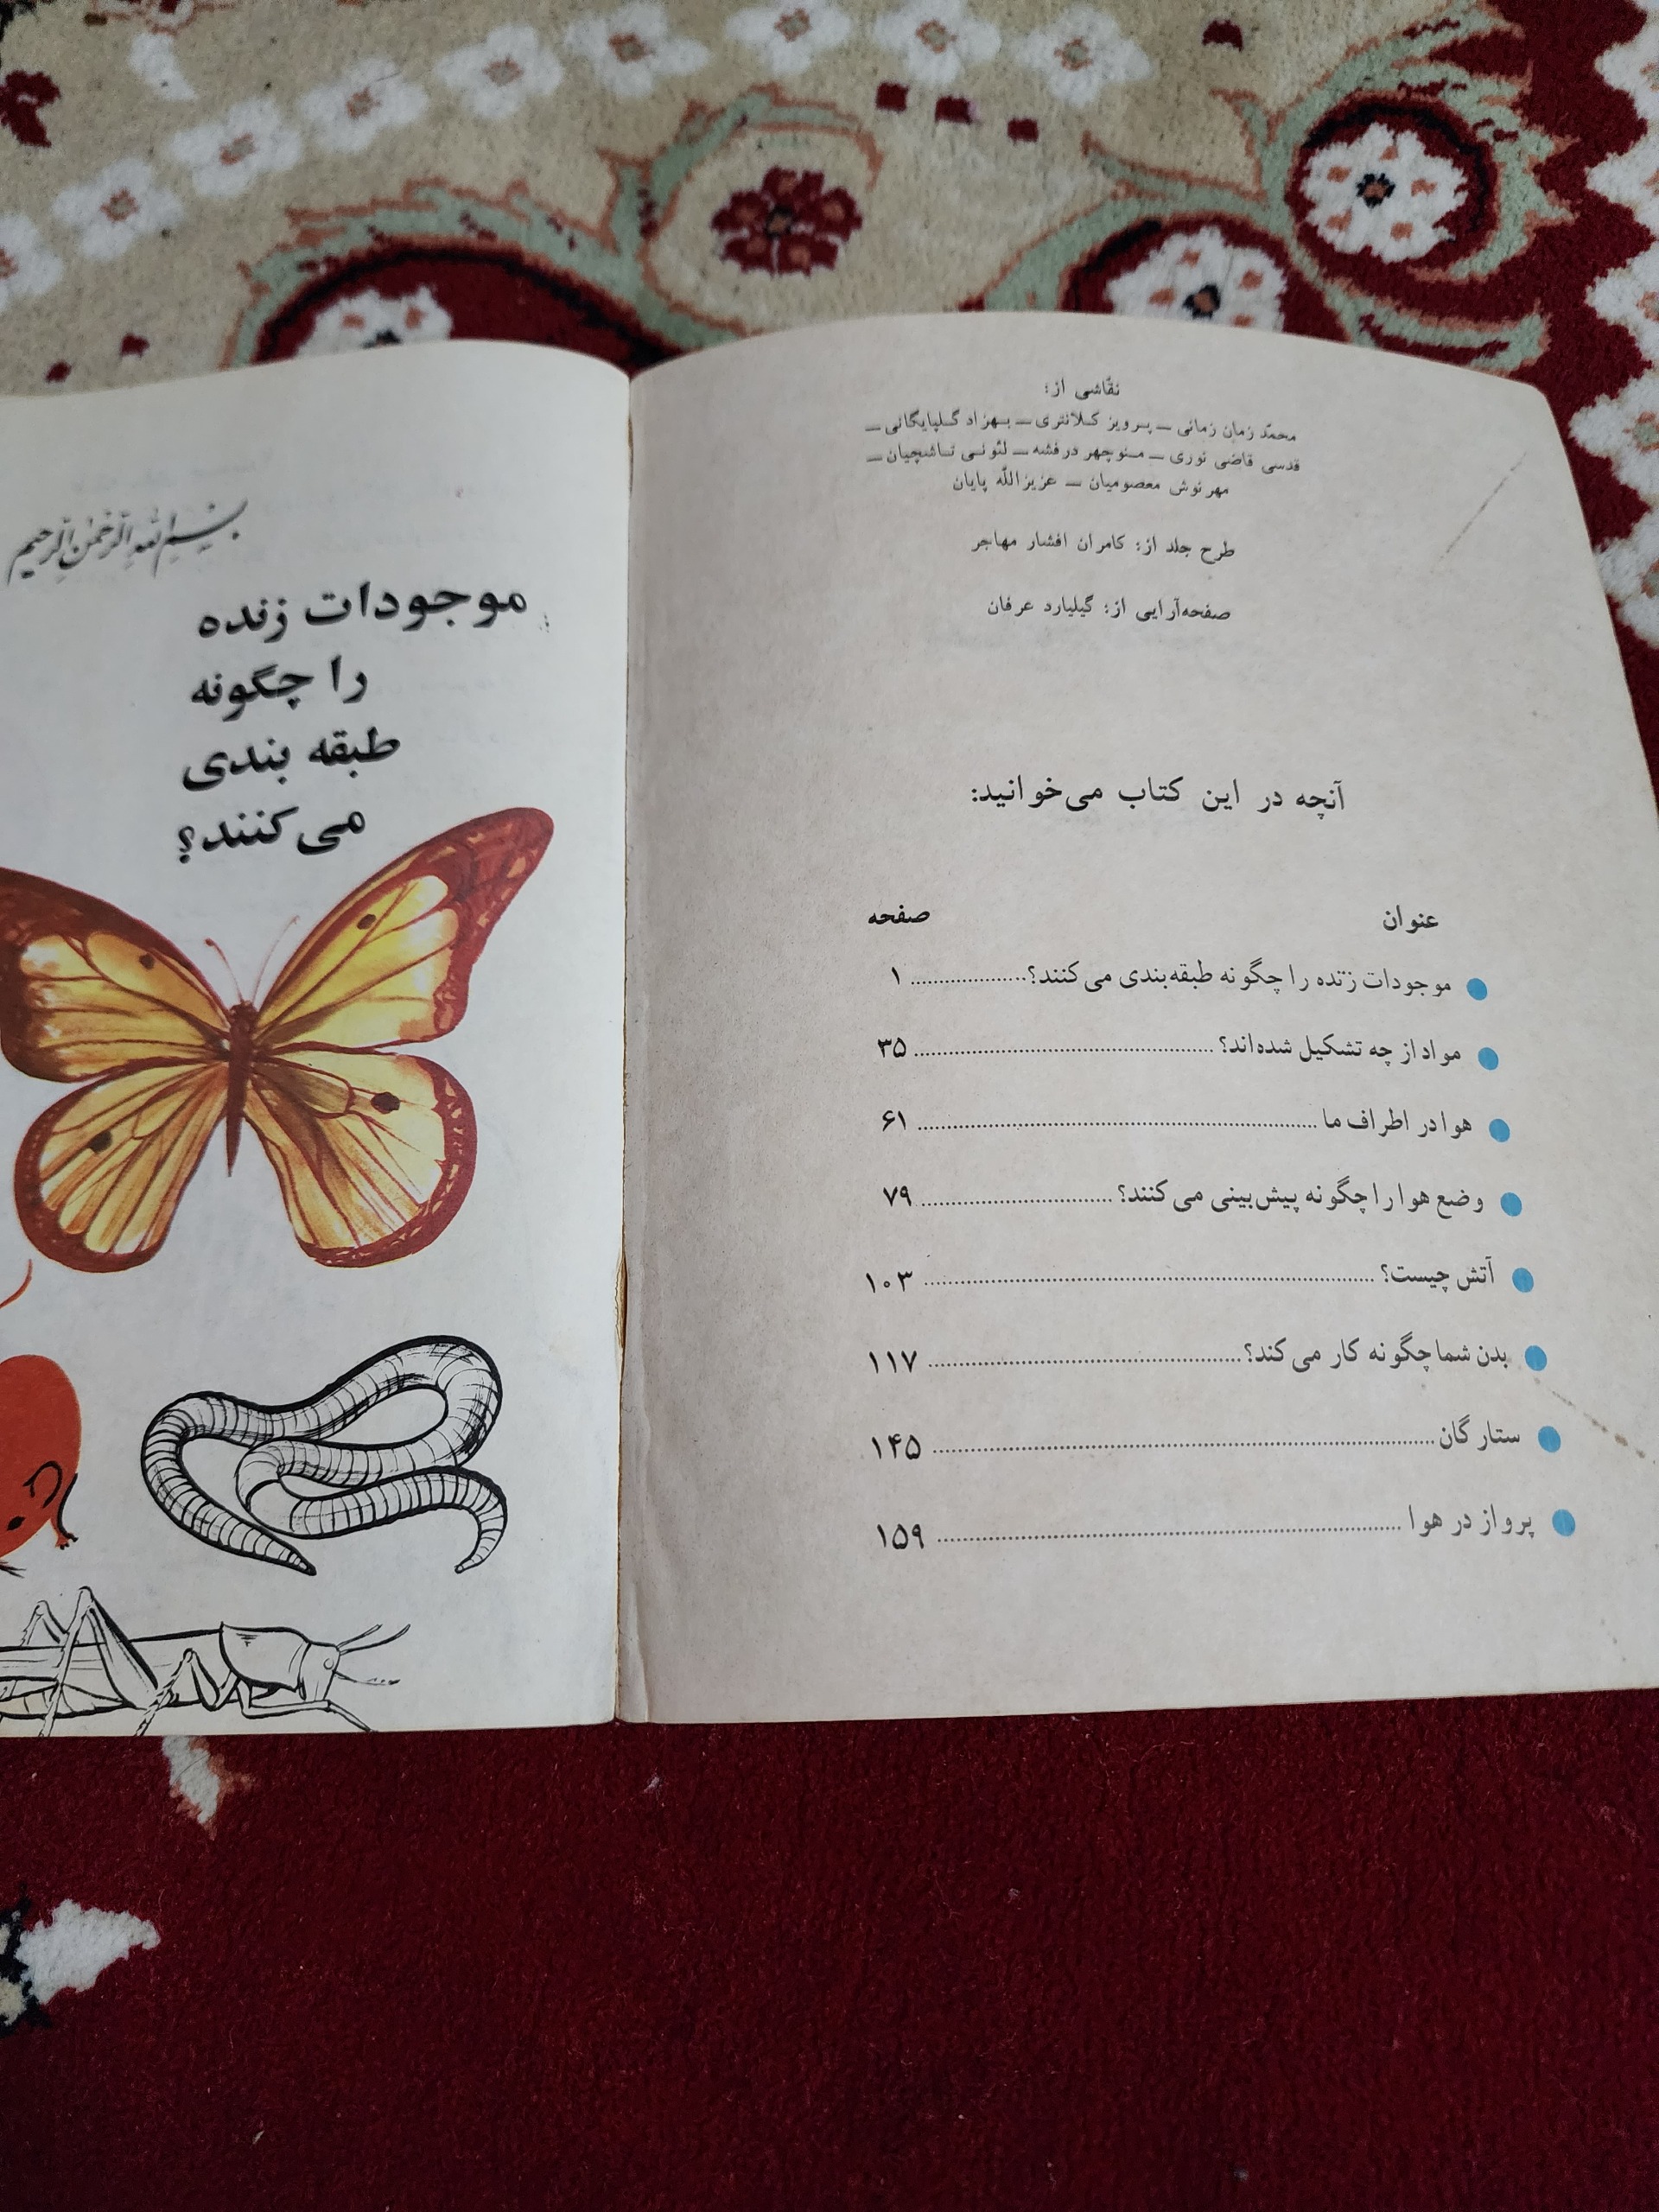 نقّاشی از:
محمّد زمان زمانی — پرویز کلانتری — بهزاد گلپایگانی —
قدسی قاضی نوری — منوچهر درفشه — لئونی تاشچیان —
مهرنوش معصومیان — عزیزاللّه پایان
طرح جلد از: کامران افشار مهاجر
صفحه‌آرایی از: گیلیارد عرفان
آنچه در این کتاب می‌خوانید:
عنوان صفحه
موجودات زنده را چگونه طبقه‌بندی می‌کنند؟ ۱
مواد از چه تشکیل شده‌اند؟ ۳۵
هوا در اطراف ما ۶۱
وضع هوا را چگونه پیش‌بینی می‌کنند؟ ۷۹
آتش چیست؟ ۱۰۳
بدن شما چگونه کار می‌کند؟ ۱۱۷
ستارگان ۱۴۵
پرواز در هوا ۱۵۹
بسم الله الرحمن الرحیم
موجودات زنده
را چگونه
طبقه بندی
می‌کنند؟